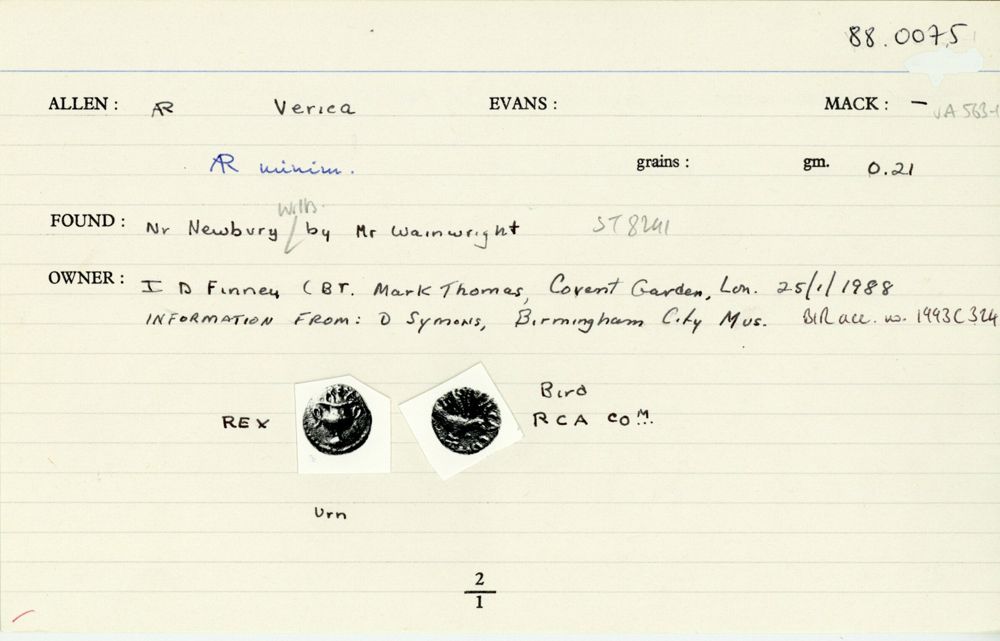 88.0075
ALLEN : AR Verica EVANS : MACK : — VA 563-1
AR minim. grains : gm. 0.21
Wilts.
FOUND : Nr Newbury / by Mr Wainwright ST8241
OWNER : I D Finney (BT. Mark Thomas, Covent Garden, Lon. 25/1/1988
INFORMATION FROM: D Symons, Birmingham City Mus. BIR acc. no. 1993C324
Bird
REX RCA COM...
Urn
2
1